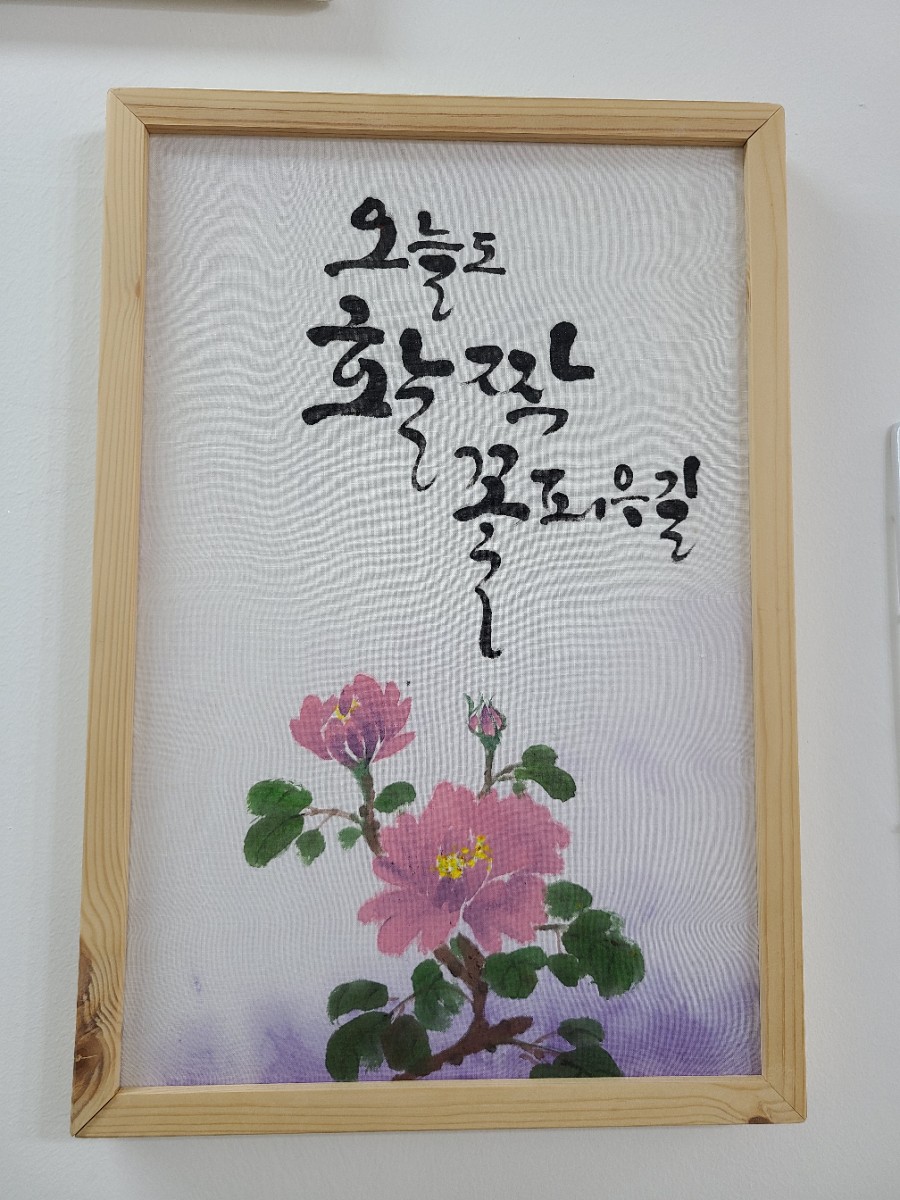 오늘도
활짝
꽃피우길